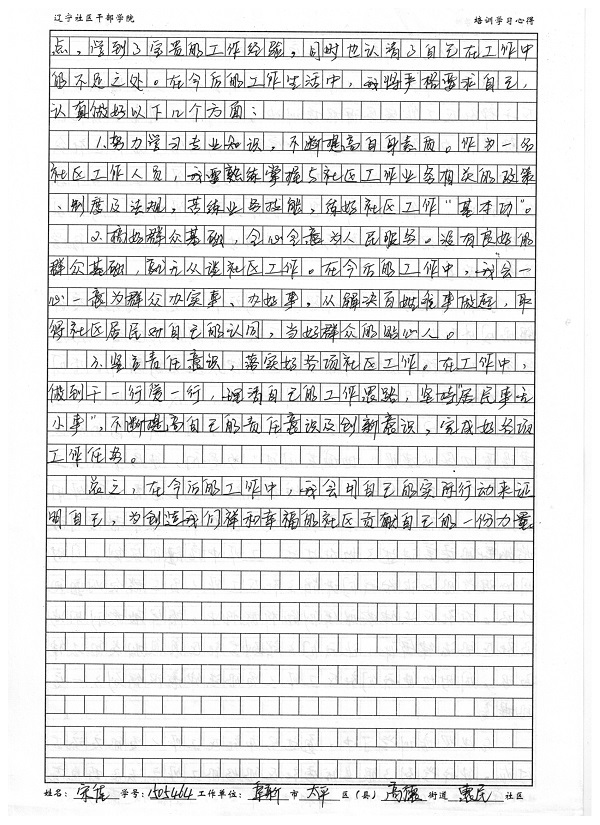 辽宁社区干部学院 培训学习心得
点，学到了宝贵的工作经验，同时也认清了自己在工作中
的不足之处。在今后的工作生活中，我将严格要求自己，
认真做好以下几个方面：
1.努力学习专业知识，不断提高自身素质。作为一名
社区工作人员，我要熟练掌握与社区工作业务相关的政策
、制度及法规，苦练业务技能，练好社区工作"基本功"。
2.搞好群众基础，全心全意为人民服务。没有良好的
群众基础，就无从谈社区工作。在今后的工作中，我会一
心一意为群众办实事、办好事，从解决百姓难事做起，取
得社区居民对自己的认同，当好群众的贴心人。
3.坚负责任意识，落实好各项社区工作。在工作中，
做到干一行爱一行，理清自己的工作思路，坚持"居民事无
小事"，不断提高自己的责任意识及创新意识，完成好各项
工作任务。
总之，在今后的工作中，我会用自己的实际行动来证
明自己，为创造我们祥和幸福的社区贡献自己的一份力量
姓名：宋佳 学号：1505464 工作单位：阜新 市 太平 区（县）高德 街道 惠民 社区